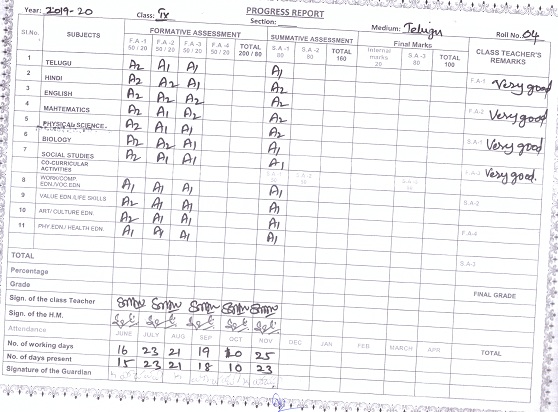 PROGRESS REPORT
Year: 2019-20 Class: IX Section: Medium: Telugu Roll No. 04
Sl.No. SUBJECTS FORMATIVE ASSESSMENT SUMMATIVE ASSESSMENT Final Marks CLASS TEACHER'S REMARKS
F.A-1 50/20 F.A-2 50/20 F.A-3 50/20 F.A-4 50/20 TOTAL 200/80 S.A-1 80 S.A-2 80 TOTAL 160 Internal marks 20 S.A-3 80 TOTAL 100
1 TELUGU A2 A1 A1 A1 F.A-1 Very good
2 HINDI A2 A2 A1 A2
3 ENGLISH A2 A2 A2 A2 F.A-2 Very good
4 MAHTEMATICS A2 A1 A2 A2
5 PHYSICAL SCIENCE A2 A2 A2 A2 S.A-1 Very good
6 BIOLOGY A2 A2 A1 A1
7 SOCIAL STUDIES A2 A1 A1 A1 F.A-3 Very good.
CO-CURRICULAR ACTIVITIES
8 WORK/COMP. EDN./VOC.EDN. A1 A1 A1 A1
9 VALUE EDN./LIFE SKILLS A2 A1 A1 A1 S.A-2
10 ART/ CULTURE EDN. A2 A1 A1 A1
11 PHY EDN / HEALTH EDN. A1 A1 A1 A1 F.A-4
TOTAL S.A-3
Percentage
Grade FINAL GRADE
Sign. of the class Teacher
Sign. of the H.M.
Attendance JUNE JULY AUG SEP OCT NOV DEC JAN FEB MARCH APR TOTAL
No. of working days 16 23 21 19 10 25
No. of days present 15 23 21 18 10 23
Signature of the Guardian